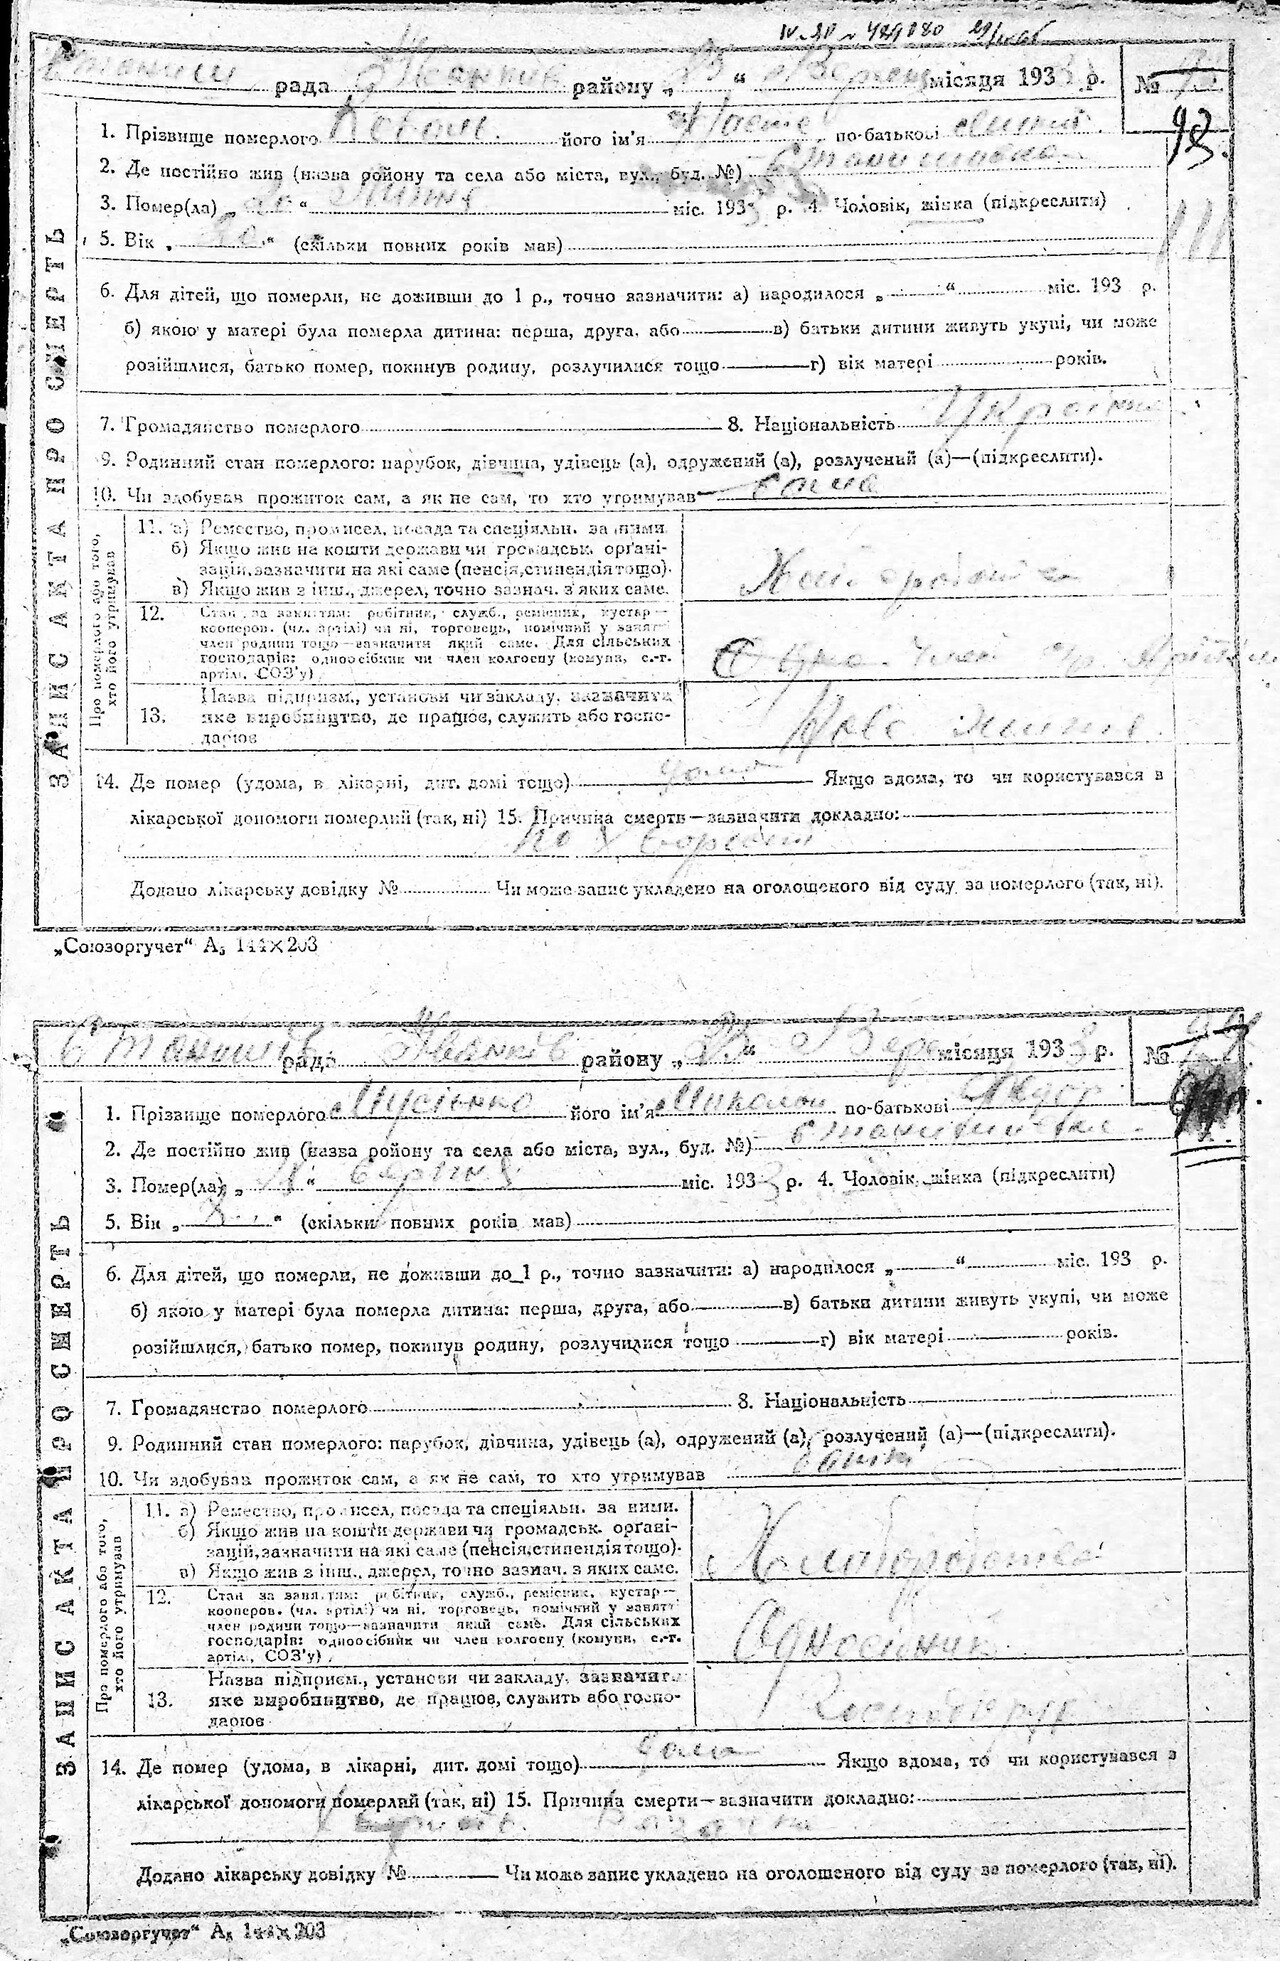 рада району „ “ місяця 193 р. №
93.
1. Прізвище померлого Коваль його ім'я Настя по-батькові
2. Де постійно жив (назва району та села або міста, вул., буд. №) Станишівка
3. Помер(ла) „ “ міс. 193 р. 4. Чоловік, жінка (підкреслити)
5. Вік „ “ (скільки повних років мав)
6. Для дітей, що померли, не доживши до 1 р., точно зазначити: а) народилося „ “ міс. 193 р.
б) якою у матері була померла дитина: перша, друга, або в) батьки дитини живуть укупі, чи може
розійшлися, батько помер, покинув родину, розлучилися тощо г) вік матері років.
7. Громадянство померлого 8. Національність Українка
9. Родинний стан померлого: парубок, дівчина, удівець (а), одружений (а), розлучений (а)—(підкреслити).
10. Чи здобував прожиток сам, а як не сам, то хто утримував сама
ЗАПИС АКТА ПРО СМЕРТЬ
Про померлого або того,
хто його утримував
11. а) Ремество, промисел, посада та спеціяльн. за ними.
б) Якщо жив на кошти держави чи громадськ. орґані-
зацій, зазначити на які саме (пенсія, стипендія тощо).
в) Якщо жив з інш., джерел, точно зазнач. з яких саме.
12. Стан за заняттям: робітник, служб., ремісник, кустар—
кооперов. (чл. артілі) чи ні, торговець, помічний у занят.
член родини тощо—зазначити який саме. Для сільських
господарів: одноосібник чи член колгоспу (комуни, с.-г.
артілі, СОЗ'у)
13. Назва підприєм., установи чи закладу, зазначити
яке виробництво, де працює, служить або госпо-
дарює
Нове життя
14. Де помер (удома, в лікарні, дит. домі тощо) дома Якщо вдома, то чи користувався з
лікарської допомоги померлий (так, ні) 15. Причина смерти—зазначити докладно:
Додано лікарську довідку № Чи може запис укладено на оголошеного від суду за померлого (так, ні).
„Союзоргучет“ А₅ 144×203
рада району „ “ місяця 193 р. №
1. Прізвище померлого Мусієнко його ім'я Микола по-батькові
2. Де постійно жив (назва району та села або міста, вул., буд. №)
3. Помер(ла) „ “ серпня міс. 1933 р. 4. Чоловік, жінка (підкреслити)
5. Вік „ “ (скільки повних років мав)
6. Для дітей, що померли, не доживши до 1 р., точно зазначити: а) народилося „ “ міс. 193 р.
б) якою у матері була померла дитина: перша, друга, або в) батьки дитини живуть укупі, чи може
розійшлися, батько помер, покинув родину, розлучилися тощо г) вік матері років.
7. Громадянство померлого 8. Національність
9. Родинний стан померлого: парубок, дівчина, удівець (а), одружений (а), розлучений (а)—(підкреслити).
10. Чи здобував прожиток сам, а як не сам, то хто утримував
ЗАПИС АКТА ПРО СМЕРТЬ
Про померлого або того,
хто його утримував
11. а) Ремество, промисел, посада та спеціяльн. за ними.
б) Якщо жив на кошти держави чи громадськ. орґані-
зацій, зазначити на які саме (пенсія, стипендія тощо).
в) Якщо жив з інш., джерел, точно зазнач. з яких саме.
12. Стан за заняттям: робітник, служб., ремісник, кустар—
кооперов. (чл. артілі) чи ні, торговець, помічний у занят.
член родини тощо—зазначити який саме. Для сільських
господарів: одноосібник чи член колгоспу (комуни, с.-г.
артілі, СОЗ'у)
Одноосібник
13. Назва підприєм., установи чи закладу, зазначити
яке виробництво, де працює, служить або госпо-
дарює
14. Де помер (удома, в лікарні, дит. домі тощо) дома Якщо вдома, то чи користувався з
лікарської допомоги померлий (так, ні) 15. Причина смерти—зазначити докладно:
Додано лікарську довідку № Чи може запис укладено на оголошеного від суду за померлого (так, ні).
„Союзоргучет“ А₅ 144×203